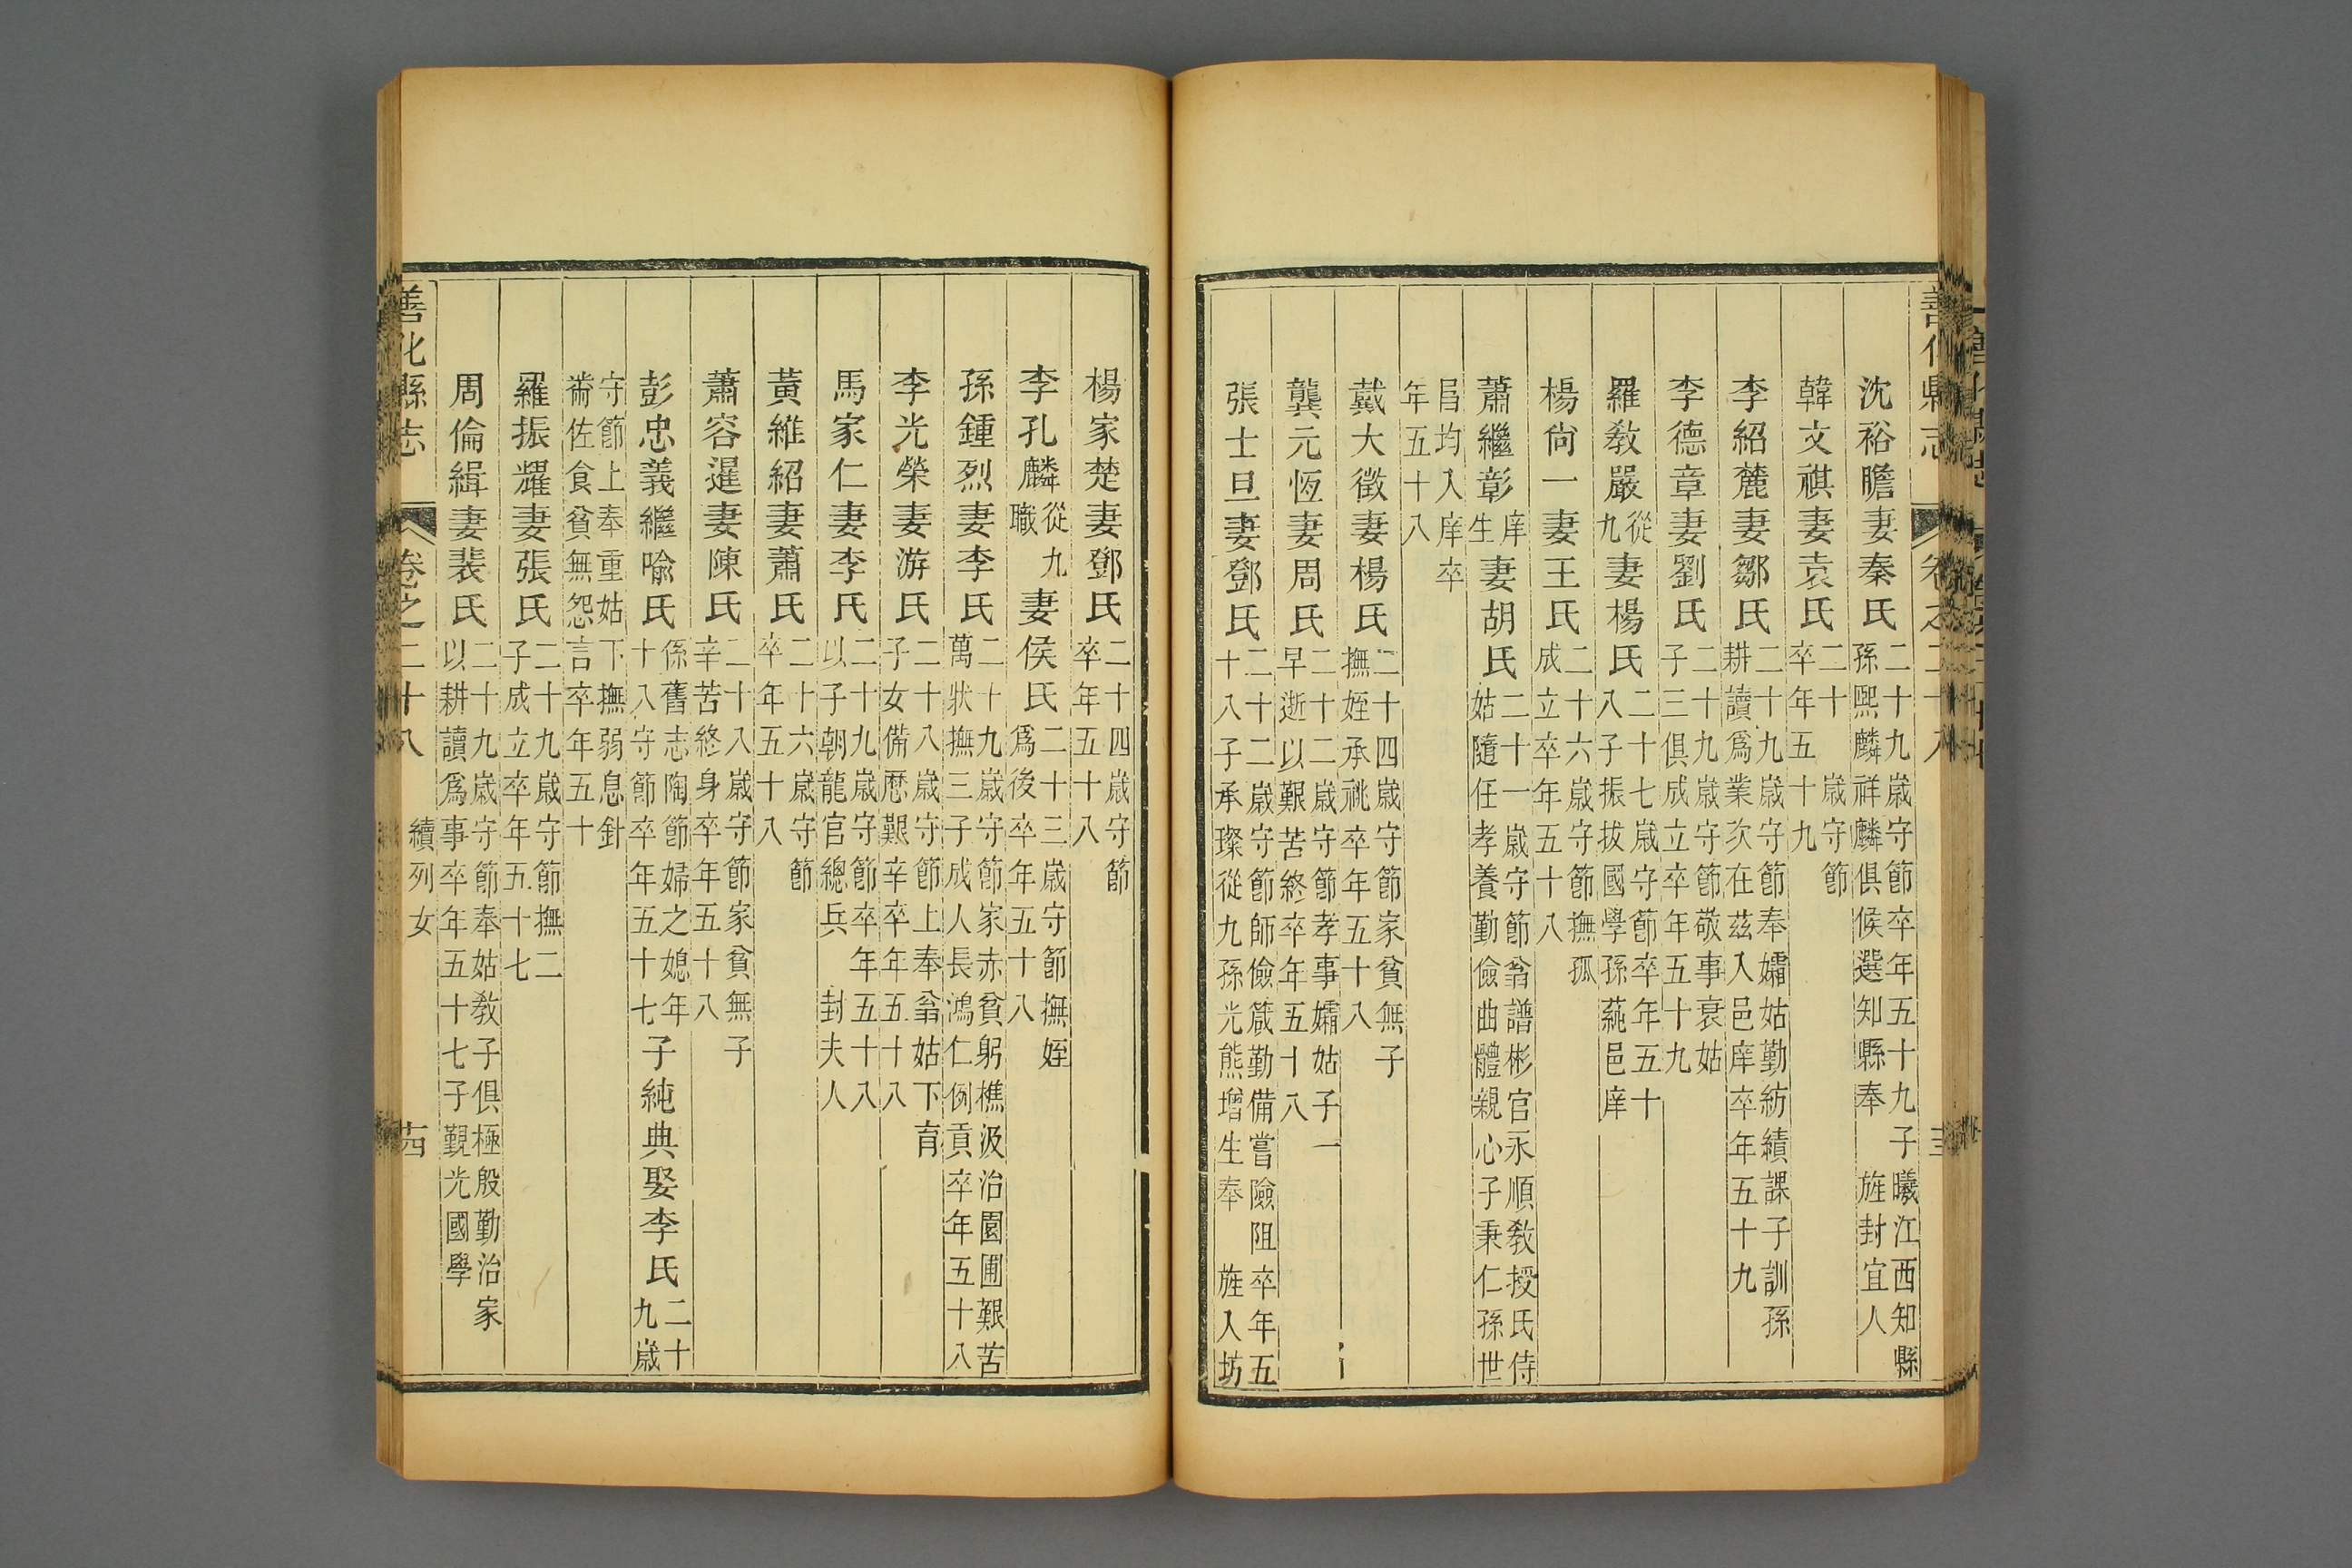 善化縣志 卷之二十八
沈裕瞻妻秦氏 二十九歲守節卒年五十九子曦江西知縣孫熙麟祥麟俱候選知縣奉 旌封宜人
韓文祺妻袁氏 二十 歲守節卒年五十九
李紹蔍妻鄒氏 二十九歲守節奉孀姑勤紡績課子訓孫耕讀爲業次在茲入邑庠卒年五十九
李德章妻劉氏 二十九歲守節敬事衰姑子三俱成立卒年五十九
羅敎嚴從九妻楊氏 二十七歲守節卒年五十八子振拔國學孫蒓邑庠
楊尙一妻王氏 二十六歲守節撫孤成立卒年五十八
蕭繼彰庠生妻胡氏 二十一歲守節翁譜彬官永順敎授氏侍姑隨任孝養勤儉曲體親心子秉仁孫世
㫛均入庠卒年五十八
戴大徵妻楊氏 二十四歲守節家貧無子撫姪承祧卒年五十八
龔元恆妻周氏 二十二歲守節孝事孀姑子一早逝以艱苦終卒年五十八
張士旦妻鄧氏 二十二歲守節師儉箴勤備嘗險阻卒年五十八子承璨從九孫光熊增生奉 旌入坊
楊家楚妻鄧氏 二十四歲守節卒年五十八
李孔麟從九職妻侯氏 二十三歲守節撫姪爲後卒年五十八
孫鍾烈妻李氏 二十九歲守節家赤貧躬樵汲治園圃艱苦萬狀撫三子成人長鴻仁例貢卒年五十八
李光榮妻游氏 二十八歲守節上奉翁姑下育子女備歷艱辛卒年五十八
馬家仁妻李氏 二十九歲守節卒年五十八以子朝龍官總兵 封夫人
黃維紹妻蕭氏 二十六歲守節卒年五十八
蕭容暹妻陳氏 二十八歲守節家貧無子辛苦終身卒年五十八
彭忠義繼喩氏 係舊志陶節婦之媳年十八守節卒年五十七子純典娶李氏二十九歲
守節上奉重姑下撫弱息針黹佐食貧無怨言卒年五十
羅振耀妻張氏 二十九歲守節撫二子成立卒年五十七
周倫緝妻裴氏 二十九歲守節奉姑敎子俱極殷勤治家以耕讀爲事卒年五十七子覲光國學
善化縣志 卷之二十八 續列女 十四